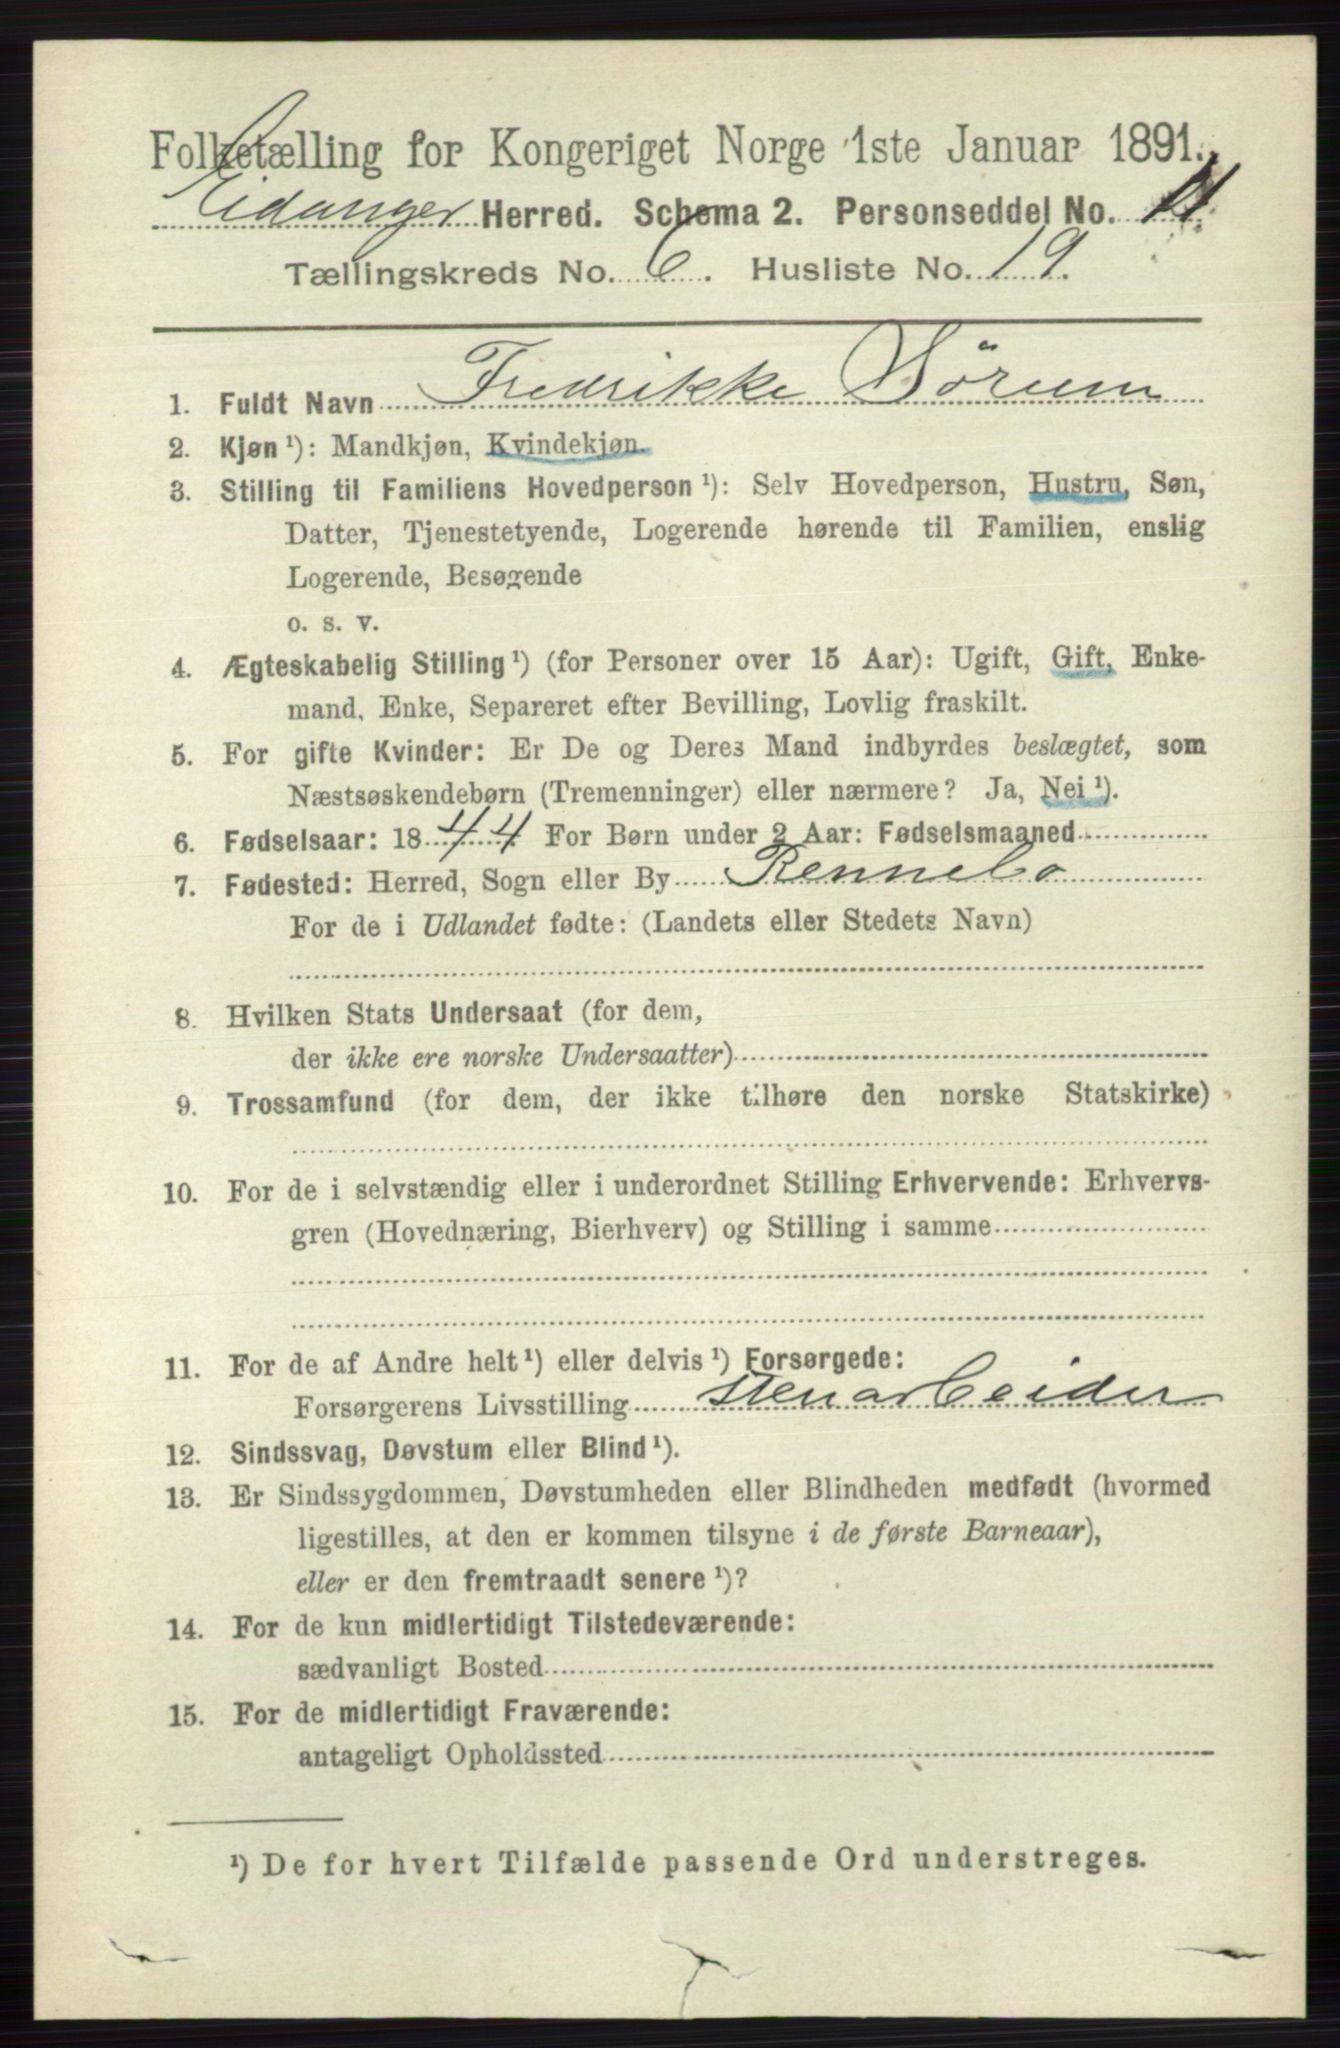 Folketælling for Kongeriget Norge 1ste Januar 1891.
Eidanger Herred. Schema 2. Personseddel No.
Tællingskreds No. 6. Husliste No. 19.
1. Fuldt Navn Fredrikke Sörum
2. Kjøn ¹): Mandkjøn, Kvindekjøn.
3. Stilling til Familiens Hovedperson ¹): Selv Hovedperson, Hustru, Søn,
Datter, Tjenestetyende, Logerende hørende til Familien, enslig
Logerende, Besøgende
o. s. v.
4. Ægteskabelig Stilling ¹) (for Personer over 15 Aar): Ugift, Gift, Enke-
mand, Enke, Separeret efter Bevilling, Lovlig fraskilt.
5. For gifte Kvinder: Er De og Deres Mand indbyrdes beslægtet, som
Næstsøskendebørn (Tremenninger) eller nærmere? Ja, Nei ¹).
6. Fødselsaar: 1844 For Børn under 2 Aar: Fødselsmaaned
7. Fødested: Herred, Sogn eller By Rennebo
For de i Udlandet fødte: (Landets eller Stedets Navn)
8. Hvilken Stats Undersaat (for dem,
der ikke ere norske Undersaatter)
9. Trossamfund (for dem, der ikke tilhøre den norske Statskirke)
10. For de i selvstændig eller i underordnet Stilling Erhvervende: Erhvervs-
gren (Hovednæring, Bierhverv) og Stilling i samme
11. For de af Andre helt ¹) eller delvis ¹) Forsørgede:
Forsørgerens Livsstilling Stenarbeider
12. Sindssvag, Døvstum eller Blind ¹).
13. Er Sindssygdommen, Døvstumheden eller Blindheden medfødt (hvormed
ligestilles, at den er kommen tilsyne i de første Barneaar),
eller er den fremtraadt senere ¹)?
14. For de kun midlertidigt Tilstedeværende:
sædvanligt Bosted
15. For de midlertidigt Fraværende:
antageligt Opholdssted
¹) De for hvert Tilfælde passende Ord understreges.